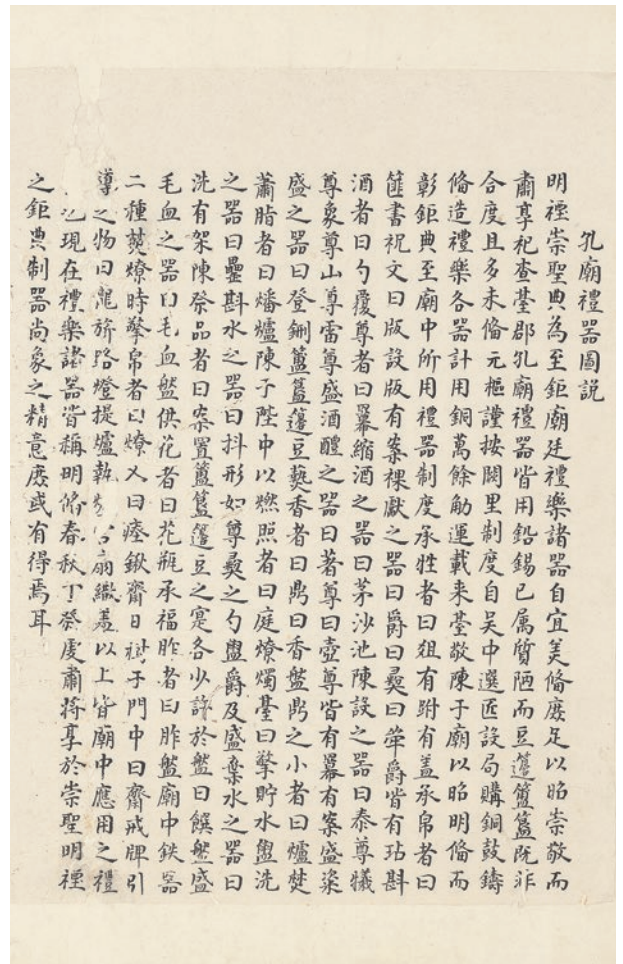 孔廟禮器圖說
明禋崇聖典為至鉅廟廷禮樂諸器自宜美俻庶足以昭崇敬而
肅享祀查臺郡孔廟禮器皆用鉛錫已属質陋而豆籩簠簋旣非
合度且多未俻元樞謹按闕里制度自吴中選匠設局購銅鼓鑄
俻造禮樂各器計用銅萬餘觔運載来臺敬陳于廟以昭明俻而
彰鉅典至廟中所用禮器制度承牲者曰俎有跗有盖承帛者曰
篚書祝文曰版設版有案祼獻之器曰爵曰彝曰斝爵皆有坫斟
酒者曰勺覆尊者曰冪縮酒之器曰茅沙池陳設之器曰泰尊犧
尊象尊山尊雷尊盛酒醴之器曰著尊曰壺尊皆有冪有案盛粢
盛之器曰登鉶簠簋籩豆爇香者曰鼎曰香盤鼎之小者曰爐焚
蕭脂者曰燔爐陳于陛中以燃照者曰庭燎燭臺曰擎貯水盥洗
之器曰罍斟水之器曰抖形如尊彝之勺盥爵及盛棄水之器曰
洗有架陳祭品者曰案置簠簋籩豆之寔各少許於盤曰饌盤盛
毛血之器曰毛血盤供花者曰花瓶承福胙者曰胙盤廟中鉄器
二種焚燎時擎帛者曰燎叉曰瘞鍬齋日樹于門中曰齋戒牌引
導之物曰龍旂路燈提爐執扇繖盖以上皆廟中應用之禮
現在禮樂諸器皆稱明俻春秋丁祭虔肅将享於崇聖明禋
之鉅典制器尚象之精意庶或有得焉耳